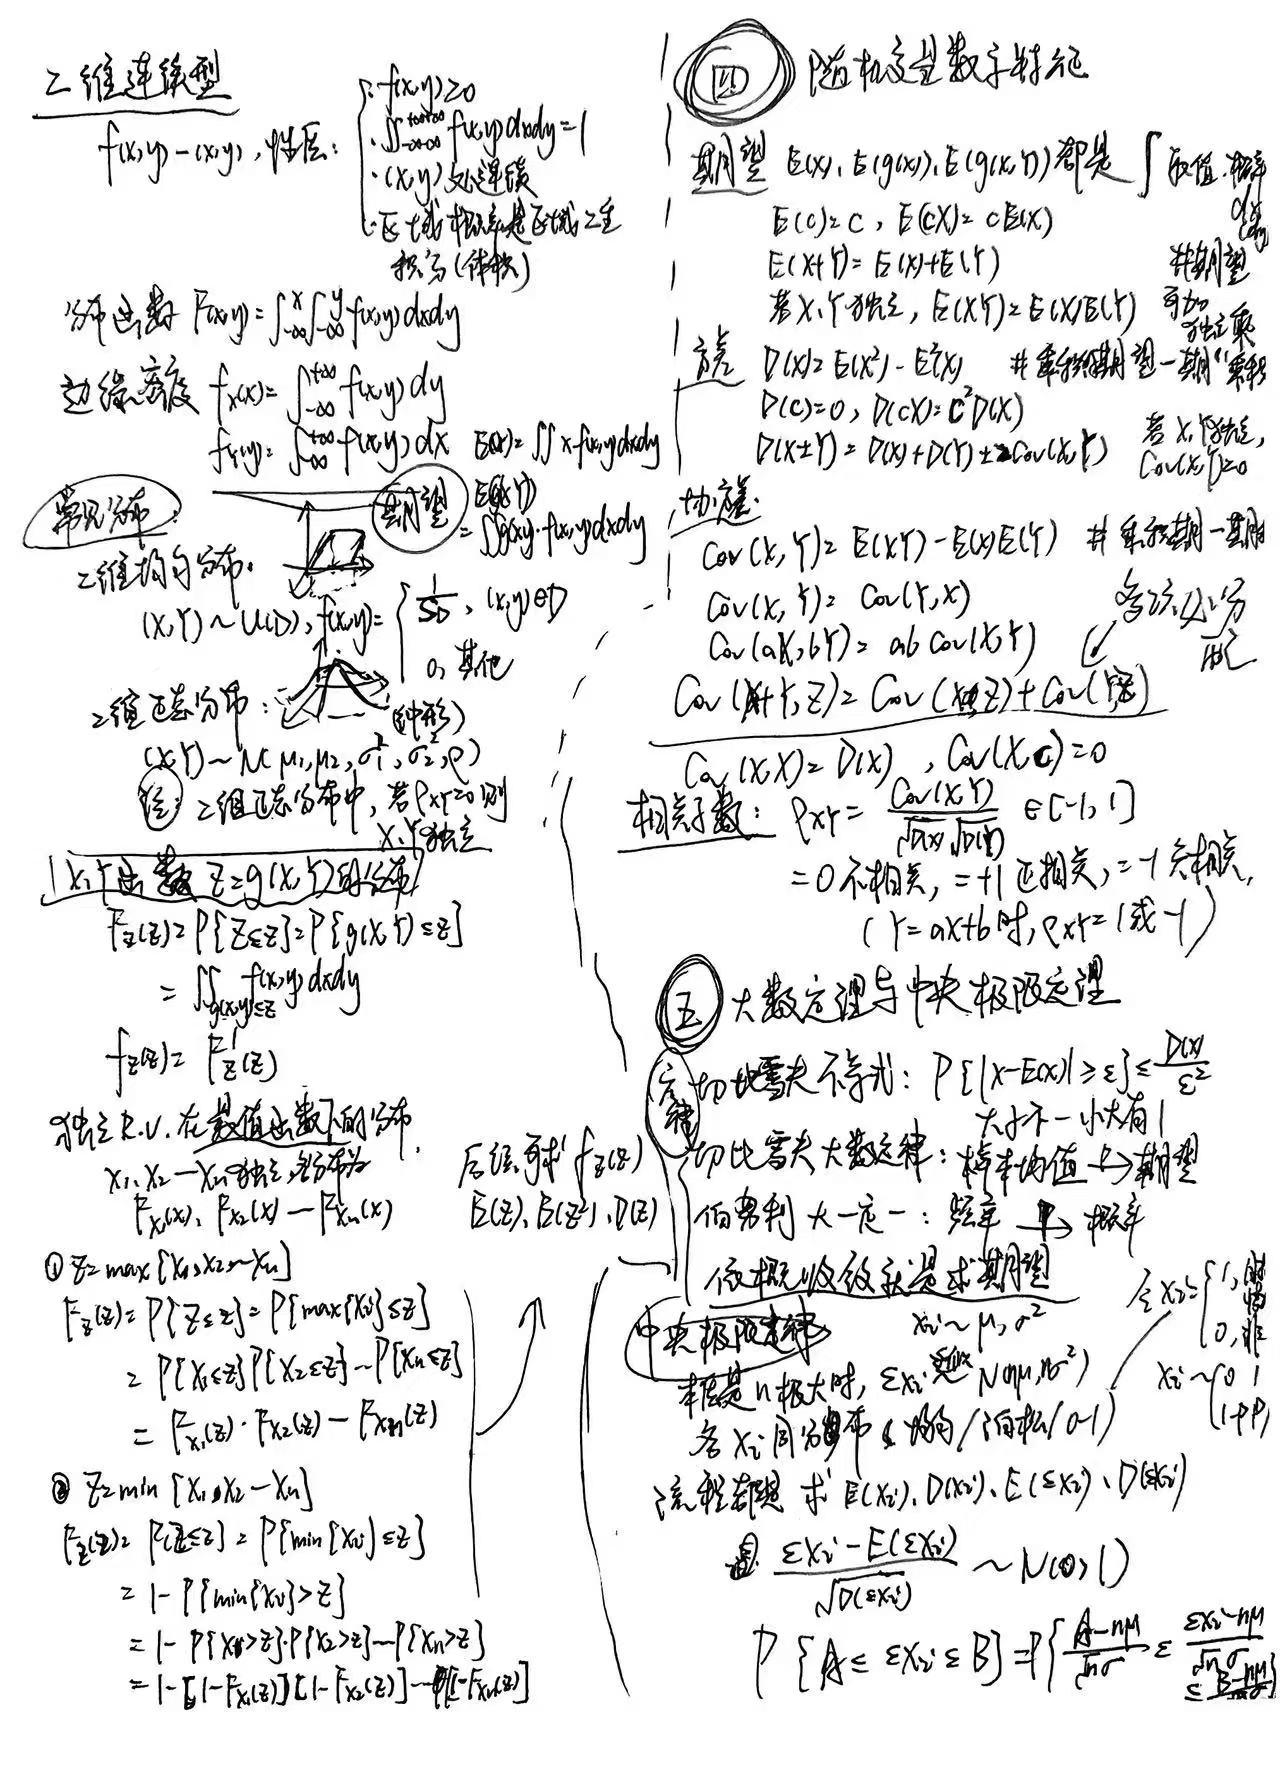 二维连续型
f(x,y)-(x,y),性质:
· f(x,y)≥0
· ∫∫-∞-∞ +∞+∞ f(x,y)dxdy=1
· (x,y)处连续
· 区域概率是区域二重
积分(体积)
分布函数 F(x,y)=∫-∞^x∫-∞^y f(x,y)dxdy
边缘密度 fx(x)=∫-∞^+∞ f(x,y)dy
fY(y)=∫-∞^+∞ f(x,y)dx E(x)=∫∫x·f(x,y)dxdy
常见分布: 期望
=∫∫g(x,y)·f(x,y)dxdy
二维均匀分布.
(X,Y)~U(D), f(x,y)={ 1/SD, (x,y)∈D
0, 其他
二维正态分布: (钟形)
(X,Y)~N(μ1,μ2,σ1²,σ2²,ρ)
注: 二维正态分布中,若ρxy=0则
X,Y独立
X,Y函数 Z=g(X,Y)的分布
Fz(z)=P{Z≤z}=P{g(X,Y)≤z}
=∫∫g(x,y)≤z f(x,y)dxdy
fz(z)=F'z(z)
独立R.V.在最值函数下的分布,
X1,X2—Xn独立,各分布为
Fx1(x)、Fx2(x)—Fxn(x)
后续可求 fz(z)
E(Z)、E(Z²)、D(Z)
① Z=max{X1,X2,~Xn}
Fz(z)=P{Z≤z}=P{max{Xi}≤z}
=P{X1≤z}P{X2≤z}—P{Xn≤z}
=Fx1(z)·Fx2(z)—Fxn(z)
② Z=min{X1,X2—Xn}
Fz(z)=P{Z≤z}=P{min{Xi}≤z}
=1-P{min{Xi}>z}
=1-P{X1>z}·P{X2>z}—P{Xn>z}
=1-[1-Fx1(z)][1-Fx2(z)]—[1-Fxn(z)]
四 随机变量数字特征
期望 E(x)、E(g(x))、E(g(x,Y))都是 ∫ 取值·概率
E(c)=c, E(cX)=cE(X)
E(X+Y)=E(x)+E(Y) #期望
若X、Y独立, E(XY)=E(X)E(Y) 可加
独立乘
方差 D(X)=E(X²)-E²(X) #乘积期望-期望乘积
D(c)=0, D(cX)=c²D(X)
D(X±Y)=D(X)+D(Y)±2Cov(X,Y) 若X,Y独立,
Cov(X,Y)=0
协方差:
Cov(X,Y)=E(XY)-E(X)E(Y) #乘积期-期
Cov(X,Y)=Cov(Y,X)
Cov(aX,bY)=ab Cov(X,Y)
Cov(X+Y,Z)=Cov(X,Z)+Cov(Y,Z)
Cov(X,X)=D(X), Cov(X,c)=0
相关系数: ρXY=Cov(X,Y)/√D(X)√D(Y) ∈[-1,1]
=0不相关,=+1正相关,=-1负相关,
(Y=aX+b时,ρXY=1或-1)
五 大数定理与中央极限定理
切比雪夫不等式: P{|X-E(X)|≥ε}≤D(X)/ε²
大小不一小大有1
切比雪夫大数定律: 样本均值 P→期望
伯努利大一定一: 频率 P→ 概率
依概收敛就是求期望
中央极限定律 Xi~μ,σ²
本质是n极大时, ΣXi N(nμ,nσ²)
各Xi同分布(均匀/泊松/0-1)
令Xi={1,
0,非
Xi~(0 1
1-P P)
流程都是 求 E(Xi)、D(Xi)、E(ΣXi)、D(ΣXi)
ΣXi-E(ΣXi)/√D(ΣXi) ~N(0,1)
P{A≤ΣXi≤B}=P{A-nμ/√nσ ≤ ΣXi-nμ/√nσ
≤ B-nμ/√nσ}